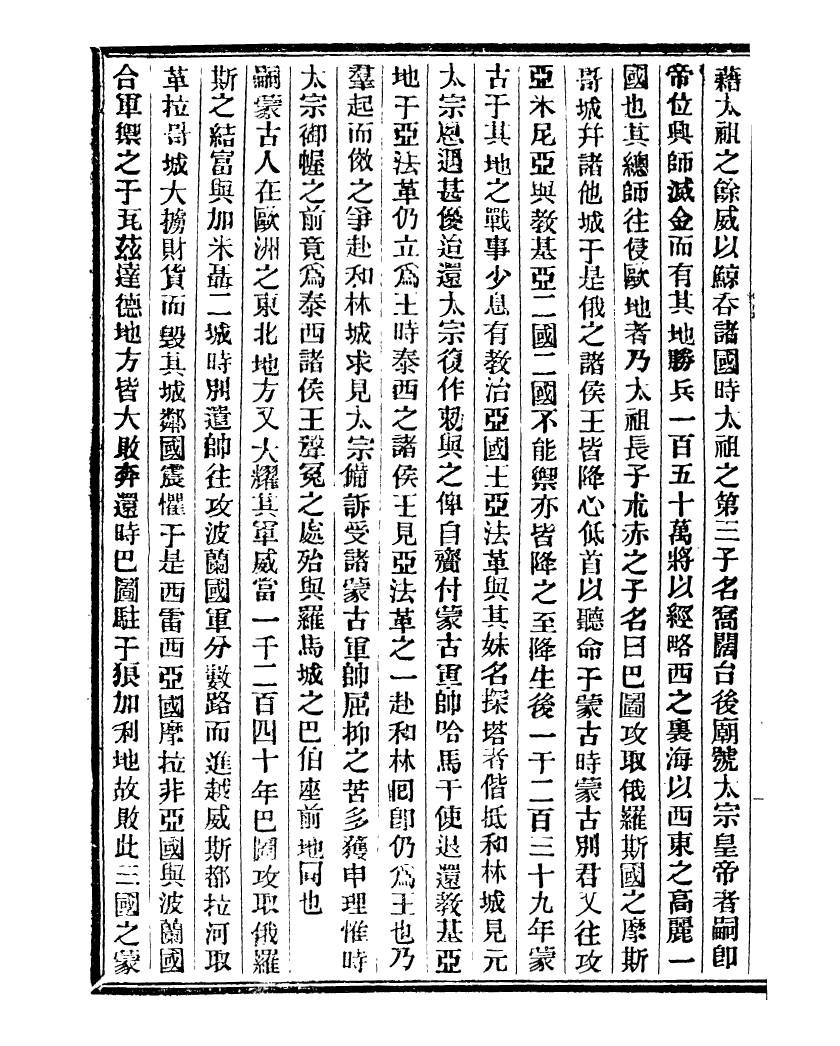 藉太祖之餘威以鯨吞諸國時太祖之第三子名窩闊台後廟號太宗皇帝者嗣卽
帝位興師滅金而有其地勝兵一百五十萬將以經略西之裏海以西東之高麗一
國也其總師往侵歐地者乃太祖長子朮赤之子名曰巴圖攻取俄羅斯國之摩斯
哥城幷諸他城于是俄之諸侯王皆降心低首以聽命于蒙古時蒙古別君又往攻
亞米尼亞與教基亞二國二國不能禦亦皆降之至降生後一千二百三十九年蒙
古于其地之戰事少息有教治亞國王亞法革與其妹名探塔者偕抵和林城見元
太宗恩遇甚優迨還太宗復作勅與之俾自齎付蒙古軍帥哈馬干使退還教基亞
地于亞法革仍立爲王時泰西之諸侯王見亞法革之一赴和林囘卽仍爲王也乃
羣起而傚之爭赴和林城求見太宗備訴受諸蒙古軍帥屈抑之苦多獲申理惟時
太宗御幄之前竟爲泰西諸侯王聲冤之處殆與羅馬城之巴伯座前地同也
嗣蒙古人在歐洲之東北地方又大耀其軍威當一千二百四十年巴圖攻取俄羅
斯之結富與加米聶二城時別遣帥往攻波蘭國軍分數路而進越威斯都拉河取
革拉哥城大擄財貨而毀其城鄰國震懼于是西雷西亞國摩拉非亞國與波蘭國
合軍禦之于瓦茲達德地方皆大敗奔還時巴圖駐于狼加利地故敗此三國之蒙